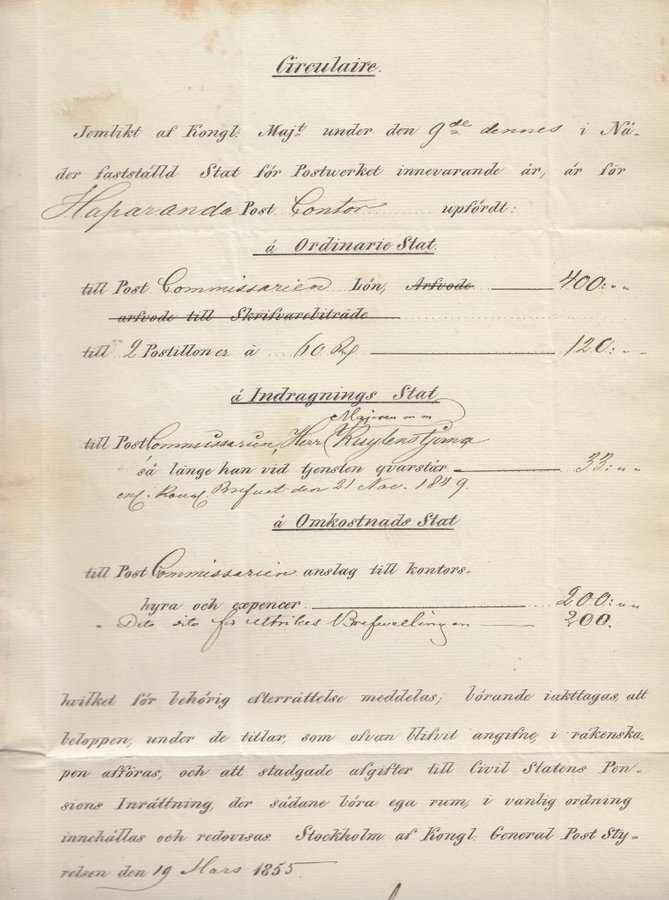 Circulaire.
Jemlikt af Kongl: Majt under den 9de dennes i Nå-
der fastställd Stat för Postwerket innevarande år, är för
Haparanda Post Contor upfördt:
å Ordinarie Stat.
till Post Commissarien Lön, Arfvode 400: " "
arfvode till Skrifvarebiträde
till 2 Postilloner à 60 Rd 120: " "
å Indragnings Stat
Majoren m m
till Post Commissarien, Herr Kuylenstjerna
så länge han vid tjensten qvarstår 33: " "
enl. Kongl Brefvet den 21 Nov. 1849.
å Omkostnads Stat
till Post Commissarien anslag till kontors-
hyra och expencer 200: " "
" Dito dito för Utrikes Brefwexlingen 200.
hvilket för behörig efterrättelse meddelas; börande iakttagas, att
beloppen, under de titlar, som ofvan blifvit angifne, i räkenska-
pen afföras, och att stadgade afgifter till Civil Statens Pen-
sions Inrättning, der sådane böra ega rum, i vanlig ordning
innehållas och redovisas. Stockholm af Kongl. General Post Sty-
relsen den 19 Mars 1855.